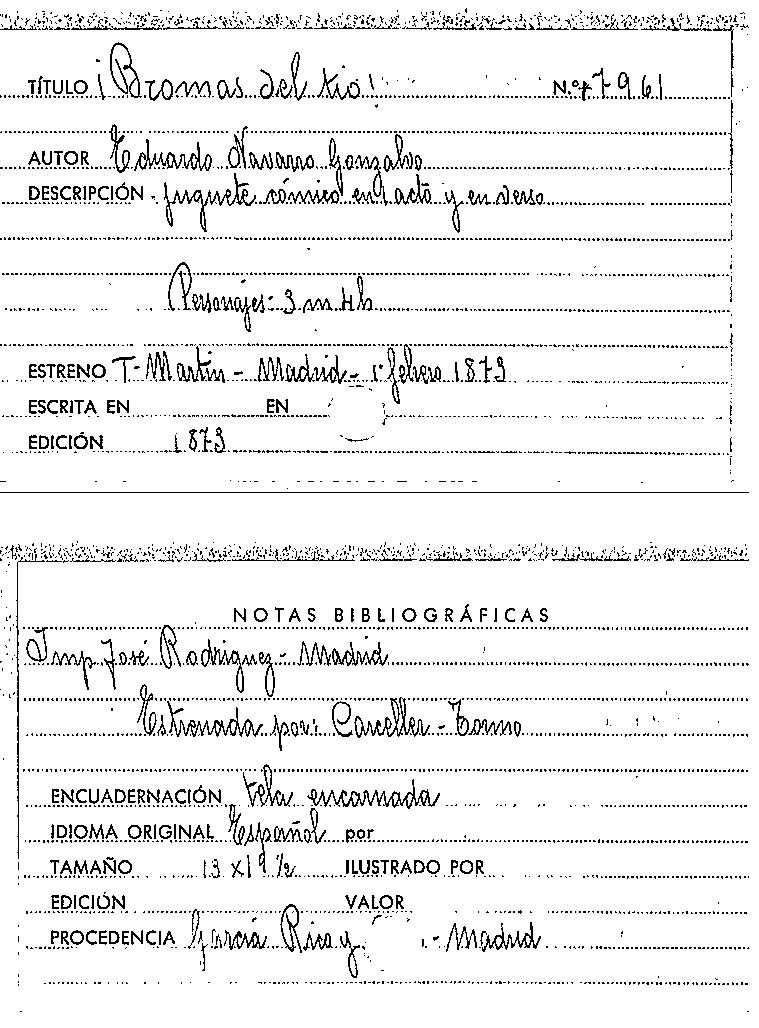 TÍTULO ¡Bromas del tio! N.º 7961
AUTOR Eduardo Navarro Gonzalvo
DESCRIPCIÓN - juguete cómico en 1 acto y en verso
Personajes - 3 m 4 h
ESTRENO T. Martin - Madrid - 1º febrero 1873
ESCRITA EN EN
EDICIÓN 1873
NOTAS BIBLIOGRÁFICAS
Imp José Rodriguez - Madrid
Estrenada por: Carceller - Tormo
ENCUADERNACIÓN tela encarnada
IDIOMA ORIGINAL Español por
TAMAÑO 13 x 19 ½ ILUSTRADO POR
EDICIÓN VALOR
PROCEDENCIA García Rico y - Madrid